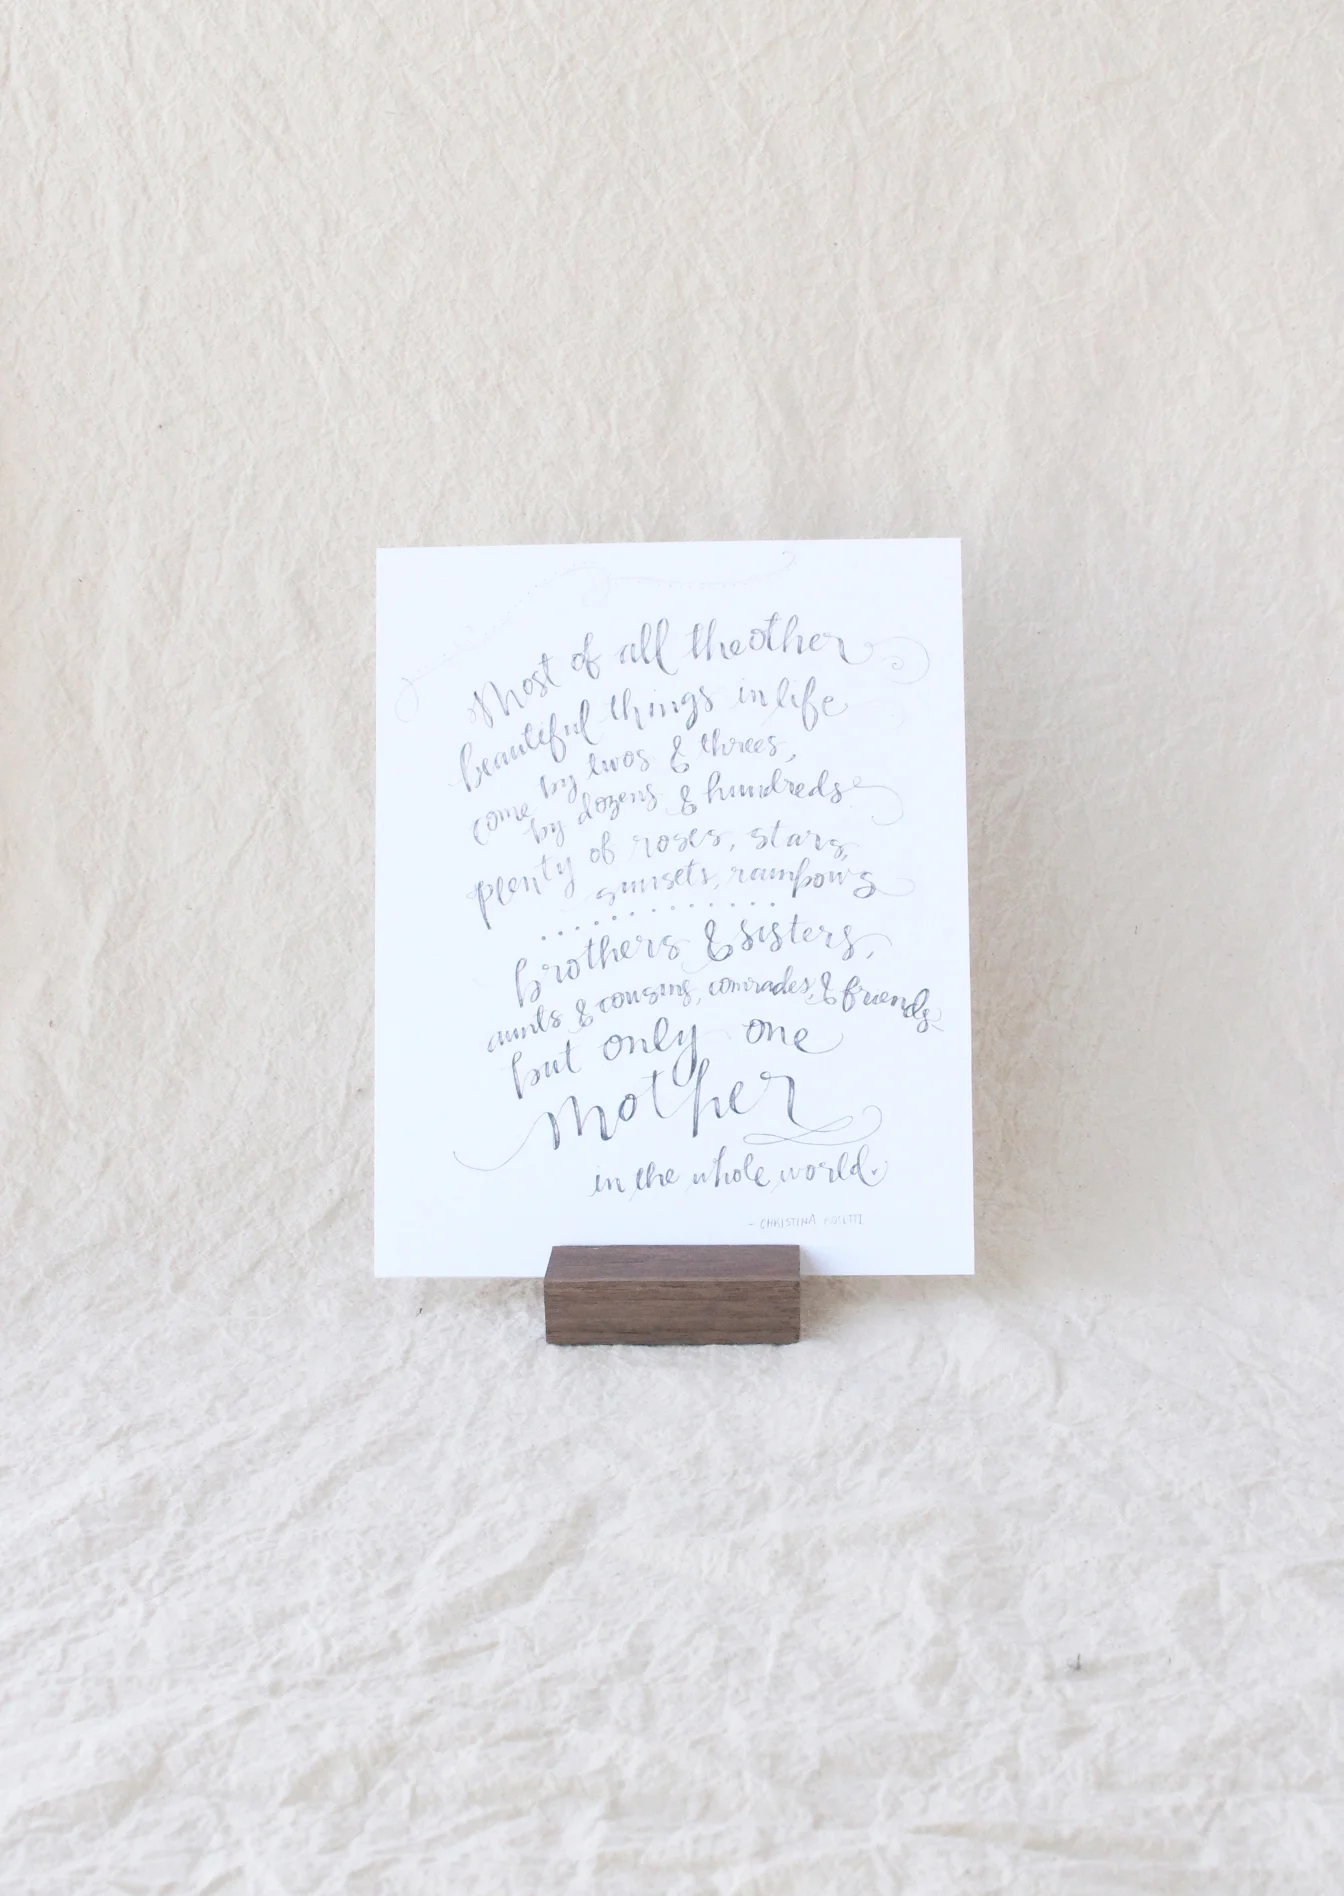 Most of all the other
beautiful things in life
come by twos & threes,
by dozens & hundreds
plenty of roses, stars,
sunsets, rainbows
brothers & sisters,
aunts & cousins, comrades, & friends
but only one
mother
in the whole world.
- CHRISTINA ROSETTI